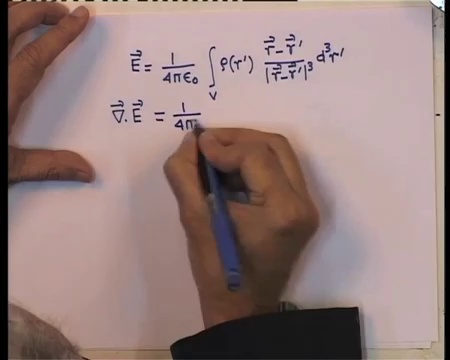 E⃗ = 1/4πε₀ ∫_V ρ(r') (r⃗ - r⃗')/|r⃗ - r⃗'|³ d³r'
∇⃗ . E⃗ = 1/4π